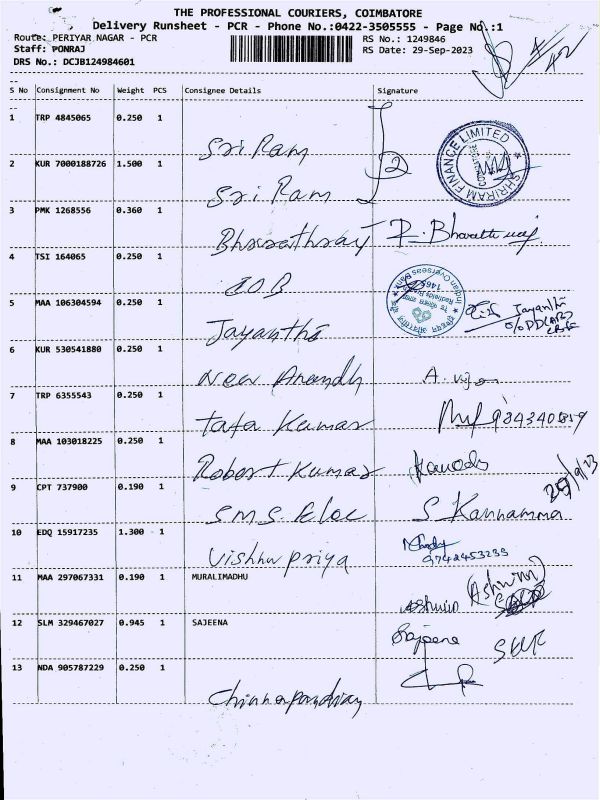 THE PROFESSIONAL COURIERS, COIMBATORE
Delivery Runsheet - PCR - Phone No.:0422-3505555 - Page No.:1
Route: PERIYAR NAGAR - PCR
RS No.: 1249846
Staff: PONRAJ
RS Date: 29-Sep-2023
DRS No.: DCJB124984601
S No Consignment No Weight PCS Consignee Details Signature
1 TRP 4845065 0.250 1 Sri Ram
SHRIRAM FINANCE LIMITED
2 KUR 7000188726 1.500 1 Sri Ram
3 PMK 1268556 0.360 1 Bharathraj
4 TSI 164065 0.250 1 IOB
Indian Overseas Bank
5 MAA 106304594 0.250 1 Jayanthi Jayanthi
6 KUR 530541880 0.250 1 New Anandh
7 TRP 6355543 0.250 1 Tata Kumar
8 MAA 103018225 0.250 1 Robert Kumar
29/9/23
9 CPT 737900 0.190 1 SMS Elec S. Kannamma
10 EDQ 15917235 1.300 1 Vishnu Priya
9742453233
11 MAA 297067331 0.190 1 MURALIMADHU Ashwin (Ashwin)
12 SLM 329467027 0.945 1 SAJEENA Sajeena
13 NDA 905787229 0.250 1 Chinnapandiay